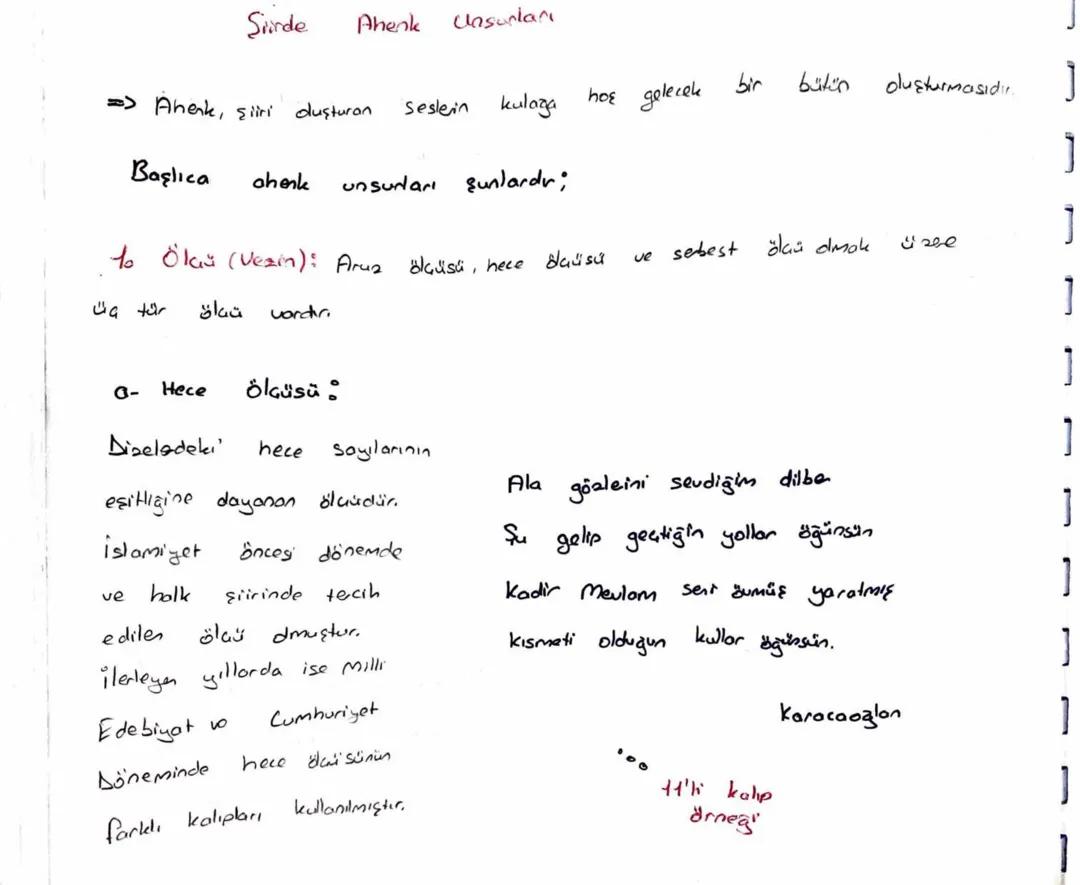 Şiirde Ahenk Unsurları
=> Ahenk, şiiri oluşturan seslerin kulağa hoş gelecek bir bütün oluşturmasıdır.
Başlıca ahenk unsurları şunlardır;
1. Ölçü (Vezin): Aruz ölçüsü, hece ölçüsü ve serbest ölçü olmak üzere
üç tür ölçü vardır.
a- Hece Ölçüsü:
Dizelerdeki hece sayılarının
eşitliğine dayanan ölçüdür.
İslamiyet öncesi dönemde
ve halk şiirinde tercih
edilen ölçü olmuştur.
İlerleyen yıllarda ise Milli
Edebiyat ve Cumhuriyet
Döneminde hece ölçüsünün
farklı kalıpları kullanılmıştır.
Ala gözlerini sevdiğim dilber
Şu gelip geçtiğin yollar öğünsün
Kadir Mevlam seni övmüş yaratmış
Kısmeti olduğun kullar öğünsün.
Karacaoğlan
11'li kalıp
örneği